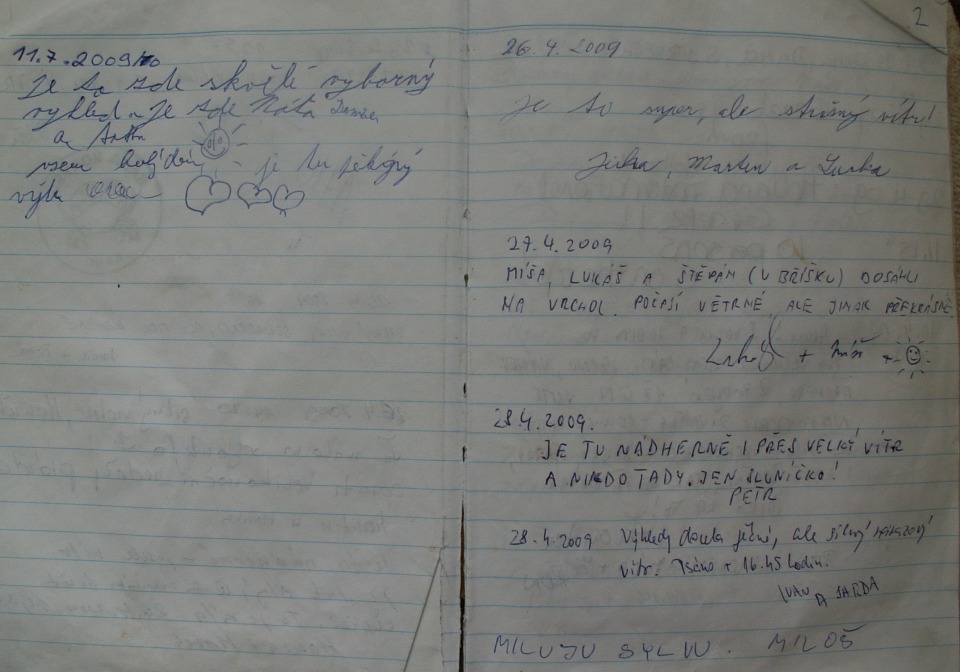 11.7.2009
Je to zde skvělé vyborný
vyhled a je zde Kata
a
všem
výlet
2
26.4.2009
je to super, ale strašný vítr!
Jirka, Martin a Lucka
27.4.2009
MÍŠA, LUKÁŠ A ŠTĚPÁN (V BŘÍŠKU) DOSÁHLI
NA VRCHOL. POČASÍ VĚTRNÉ, ALE JINAK PŘEKRÁSNÉ.
Lukáš + Míša +
28.4.2009.
JE TU NÁDHERNĚ I PŘES VELKÝ VÍTR
A NIKDO TADY. JEN SLUNÍČKO!
PETR
28.4.2009 Výhledy docela pěkné, ale silný nárazový
vítr. Psáno v 16.45 hodin.
IVAN A JARDA
MILUJU SYLVU. MILOŠ